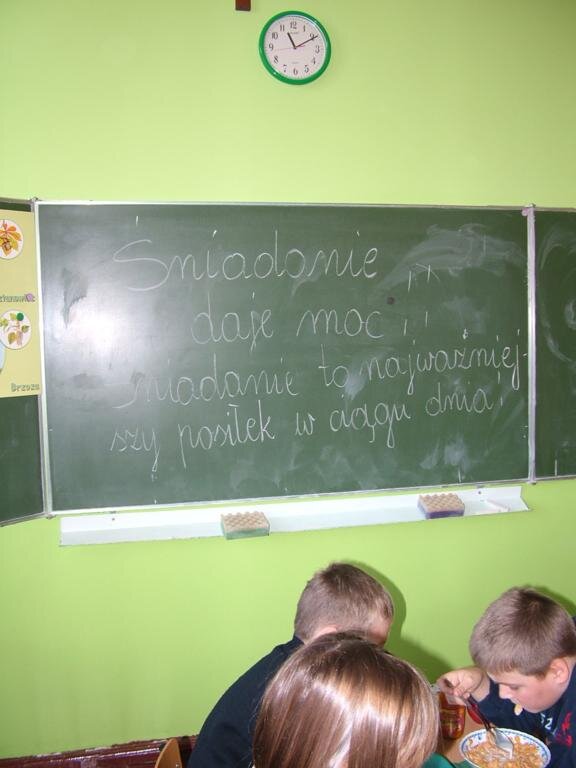 Śniadanie
daje moc!!
Śniadanie to najważniej-
szy posiłek w ciągu dnia!
Brzoza